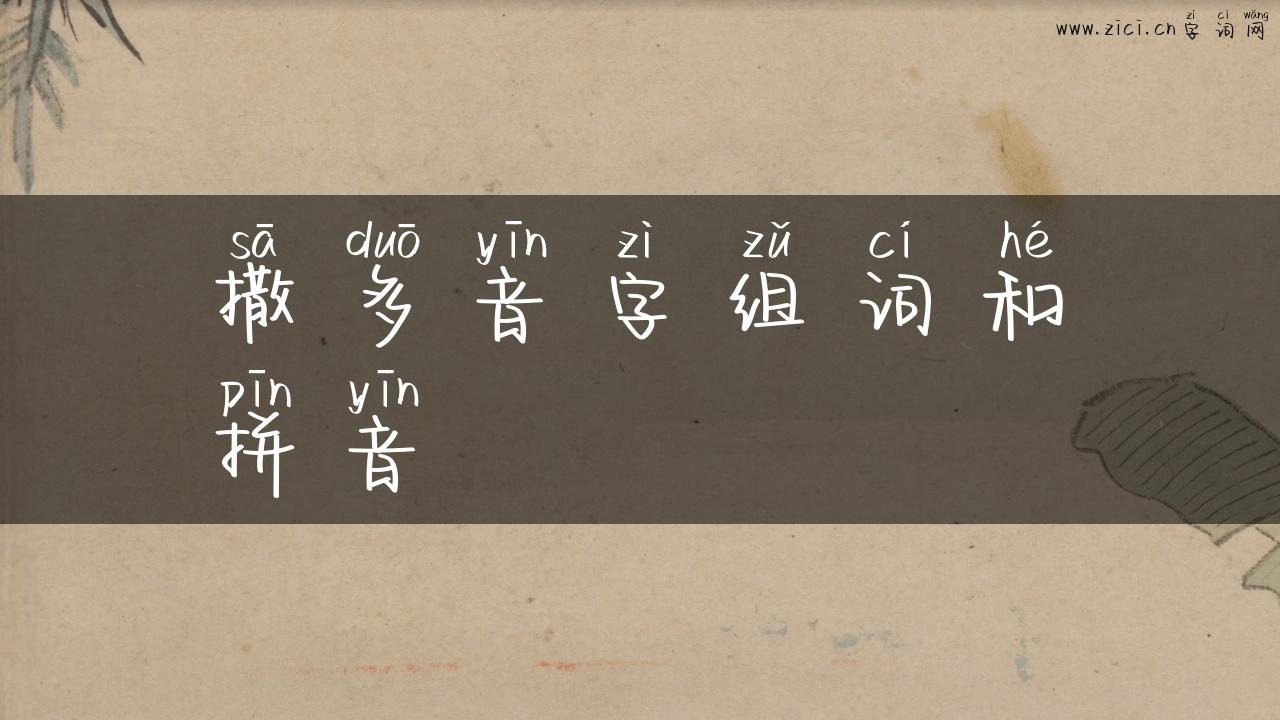 zì cí wǎng
www.zici.cn 字词网
sā duō yīn zì zǔ cí hé
撒多音字组词和
pīn yīn
拼音